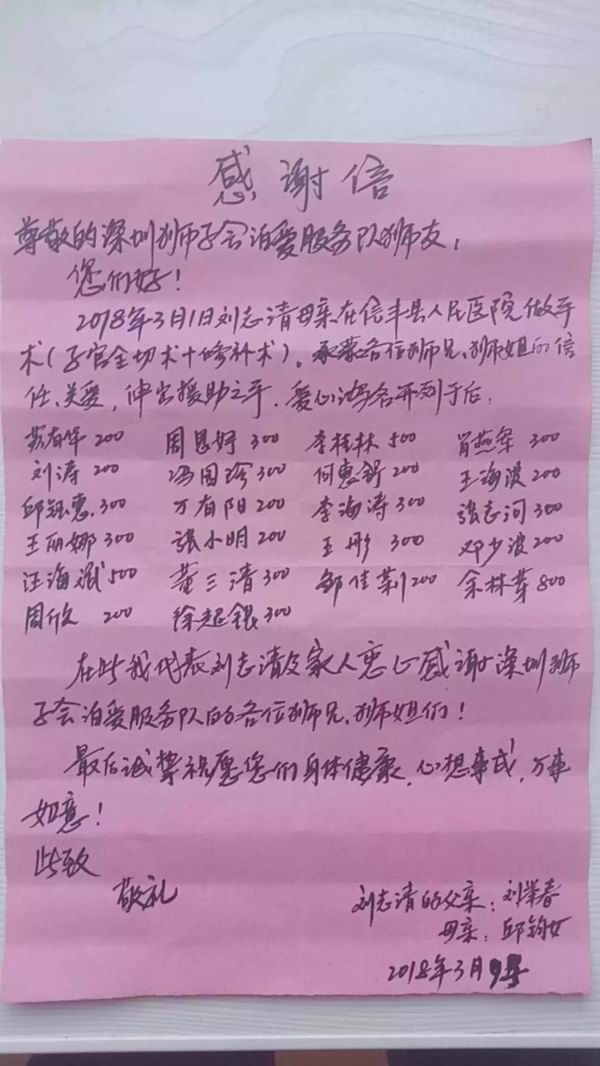 感谢信
尊敬的深圳狮子会泊爱服务队狮友，
您们好！
2018年3月1日刘志清母亲在信丰县人民医院做手
术(子宫全切术十修补术)。承蒙各位狮兄、狮姐的信
任、关爱，伸出援助之手，爱心鸿名开列于后：
苏有华 200 周思妤 300 李桂林 500 肖燕군 300
刘涛 200 冯国珍 300 何惠锌 200 王海波 200
邱钰惠 300 万有阳 200 李海涛 300 张志河 300
王丽娜 300 张小明 200 王彤 300 邓少波 200
汪海斌 500 董三清 300 邹佳莉 200 余林芽 800
周欣 200 徐超银 300
在此我代表刘志清及家人衷心感谢深圳狮
子会泊爱服务队的各位狮兄、狮姐们！
最后诚挚祝愿您们身体健康，心想事成，万事
如意！
此致
敬礼
刘志清的父亲：刘学春
母亲：邱钧女
2018年3月9号